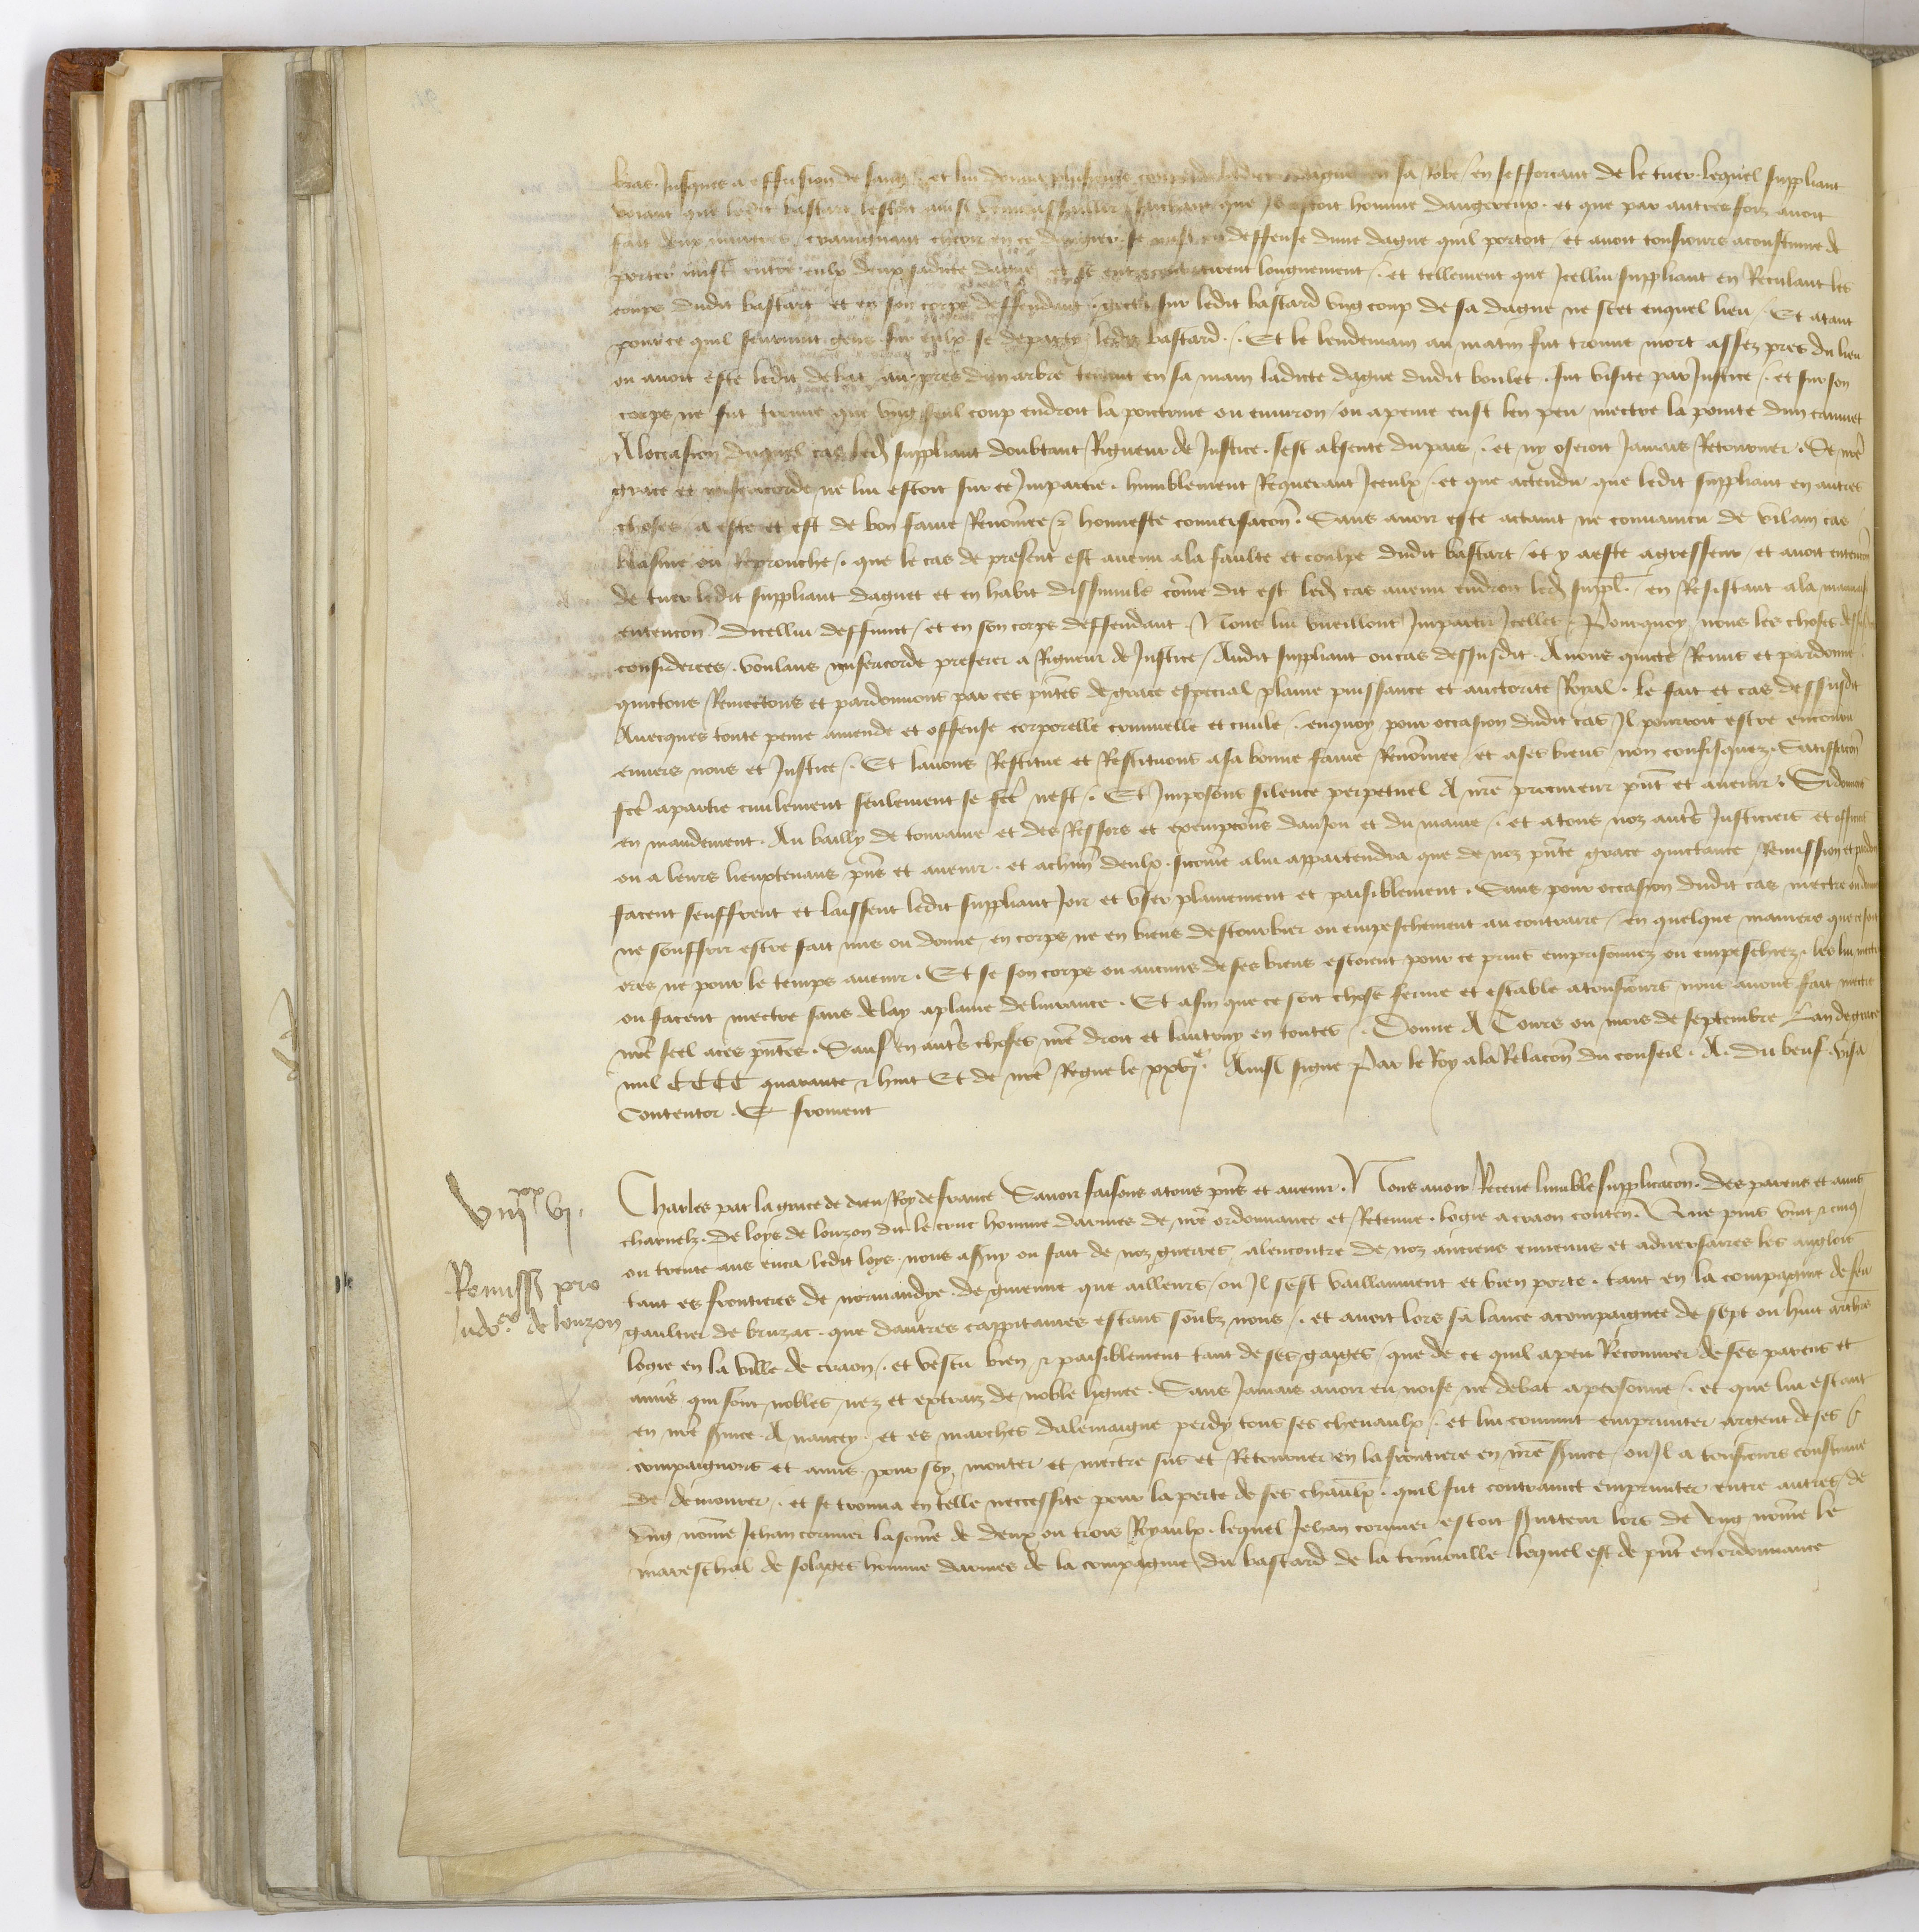 bras. Jusques a effusion de sang. et lui donna plusieurs coups de ladicte dague en sa Robe / en sefforcant de le tuer. lequel suppliant
voiant que ledit bastart lestoit ainsi venu assaillir / sachant que Il estoit homme dangereux. et que par autresfoiz auoit
fait deux murtres / craingnant cheoir en ce dangier. se mist en deffense dune dague quil portoit / et auoit tousiours acoustume de
porter mist entre eulx deux sadicte dague / et se entre rent longuement /. et tellement que Icellui suppliant en Reculant les
coups dudit bastart et en son corps deffendant. gecta sur ledit bastard vng coup de sa dague ne scet enquel lieu /. Et atant
pource quil seuruint gens sur eulx se departy ledit bastard. /. Et le lendemain au matin fut trouue mort assez pres du lieu
ou auoit este ledit debat au pres dun arbre tenant en sa main ladicte dague dudit boulet. fut visite par Justice /. et sur son
corps ne fut trouue que vng seul coup endroit la poictrine ou enuiron / ou apeine eust len peu mectre la pointe dun canuet
Aloccasion duquel cas led suppliant doubtant Rigueur de Justice. sest absente dupais /. et ny oseroit Jamais Retourner. Se nre
grace et misericorde ne lui estoit sur ce Impartie. humblement Requerant Iceulx /. et que actendu que ledit suppliant en autres
choses a este et est de bon fame Renomee & honneste conuersacon. Sans auoir este actaint ne conuaincu de vilain cas
blasme ou Reprouche /. que le cas de present est auenu ala faulte et coulpe dudit bastart / et y aeste agresseur / et auoit entencon
de tuer ledit suppliant daguet et en habit dissimule come dit est led cas auenu endroit led suppl. / en Resistant ala mauuaise
entencon dicellui deffunct / et en son corps deffendant. Nous lui vueillons Impartir Icelles. Pourquoy nous les choses dessusd
considerees. voulans misericorde preferer a Rigueur de Justice / Audit suppliant oucas dessusdit. Auons quicte Remis et pardonne
quictons Remectons et pardonnons par ces pntes de grace especial plaine puissance et auctorite Royal. le fait et cas dessusdit
Auecques toute peine amende et offense corporelle criminelle et ciuile /. enquoy pour occasion dudit cas Il pourroit estre encouru
enuers nous et Justice /. Et lauons Restitue et Restituons asa bonne fame Renomee / et ases biens non confisquez. Satisfacon
fcte apartie ciuilement seulement se fcte nest /. Et Imposons silence perpetuel A nre procureur pnt et auenir. Si donnons
en mandement. Au bailly de touraine et des Ressors et exempcons danjou et du maine /. et atous noz autres Justiciers et officiers
ou a leurs lieuxtenans pns et auenir. et achun deulx. sicome alui appartendra que de noz pnte grace quictance Remission et pardon
facent seuffrent et laissent ledit suppliant Joir et vser plainement et paisiblement. Sans pour occasion dudit cas mectre
ne souffrir estre fait mis ou donne en corps ne en biens destourbier ou empeschement au contraire / en quelque maniere que ce soit
ores ne pour le temps auenir. Et se son corps ou aucuns de ses biens estoient pour ce prins emprisonnez ou empeschez. les lui mectre
ou facent mectre sans delay aplaine deliurance. Et afin que ce soit chose ferme et estable atousiours nous auons fait mectre
nre seel aces pntes. Sauf en autres choses nre droit et lautruy en toutes /. Donne A Tours ou mois de septembre Lan de grace
mil CCCC quarante & huit Et de nre Regne le xxvje. Ainsi signe Par le Roy ala Relacon du conseil. A. Du beuf. visa
Contentor. E froment
viijxx vj.
Remiss pro
ludoco de louzon
Charles par la grace de dieu Roy de france Sauoir faisons atous pns et auenir. Nous auoir Receue lumble supplicacon. des parens et amis
charnelz. De loys de louzon dit le cruc homme darmes de nre ordonnance et Retenue. logie acraon conten. Que puis vint & cinq
ou trente ans enca ledit loys. nous aseruy ou fait de noz guerres alencontre de noz anciens ennemis et aduersaires les anglois
tant es frontieres de normandye. de guienne que ailleurs / ou Il sest vaillamment et bien porte. tant en la compagnie de feu
gaultier de bruzac. que dautres cappitaines estans soubz nous /. et auoit lors sa lance acompaignee de sept ou huit archrs
logie en la ville de craon /. et vescu bien & paisiblement tant de ses gaiges / que de ce quil apeu Recouurer de ses parens et
amis qui sont nobles nez et extraiz de noble lignee. Sans Jamais auoir eu noise ne debat apersonne /. et que lui estant
en nre seruice. A nancey. et es marches dalemaigne perdy tous ses cheuaulx /. et lui conuint emprunter argent de ses
compaignons et amis pour soy monter et mectre sus et Retourner en la frontiere en nre seruice / ou Il a tousiours coustume
de demourer /. et se trouua en telle neccessite pour laperte de ses chaulx. quil fut contrainct emprunter entre autres de
vng nome Jehan cormier lasome de deux ou trois Royaulx. lequel Jehan cormier estoit seruiteur lors de vng nome le
mareschal de solages homme darmes de la compagnie du bastard de la trimoulle lequel est de pnt en ordonnance